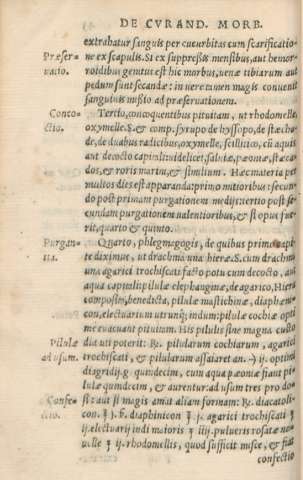 DE CVRAND. MORB.
extrahatur sanguis per cucurbitas cum scarificatio-
Præser- ne ex scapulis. Si ex suppressis mensibus, aut hemor-
uatio. roidibus genitus est hic morbus, uenæ tibiarum aut
pedum sunt secandæ: in uere tamen magis conuenit
sanguinis missio ad præseruationem.
Conco- Tertio, concoquentibus pituitam, ut rhodomelle,
ctio. oxymelle. S. & comp. syrupo de hyssopo, de stœcha-
de, de duabus radicibus, oxymelle, scillitico, cū aquis
aut decocto capituli uidelicet, saluiæ, pæoniæ, stœca-
dos, & roris marini, & similium. Hæc materia per
multos dies est apparanda: primo mitioribus: secun-
do post primam purgationem medijs: tertio post se-
cundam purgationem ualentioribus, & si opus fue-
rit, quarto & quinto.
Purgan- Quarto, phlegmagogis, de quibus primo capi-
tia. te diximus, ut drachma una hieræ. S. cum drachma
una agarici trochiscati facto potu cum decocto, aut
aqua capituli: pilulæ elephanginæ, de agarico, Hiera
composita, benedicta, pilulæ mastichinæ, diaphœni-
con, electuarium utrunq; indum: pilulæ cochiæ opti
me euacuant pituitam. His pilulis sine magna custo
Pilulæ dia uti poterit: ℞. pilularum cochiarum, agarici
ad usum. trochiscati, & pilularum assaiaret an. ij. optimi
diagridij g. quindecim, cum aqua pæoniæ fiant pi-
lulæ quindecim, & aurentur: ad usum tres pro do-
Confe- si: aut si magis amat aliam formam: ℞. diacatoli-
ctio. con. diaphinicon agarici trochiscati
ij. electuarij indi maioris iij. pulueris rosatæ no-
uellæ ij. rhodomellis, quod sufficit misce, & fiat
confectio